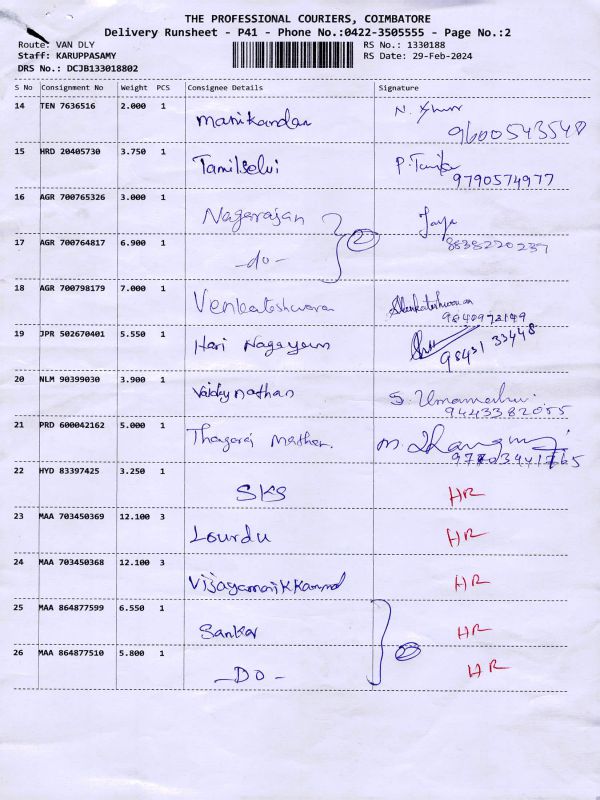 THE PROFESSIONAL COURIERS, COIMBATORE
Delivery Runsheet - P41 - Phone No.:0422-3505555 - Page No.:2
Route: VAN DLY RS No.: 1330188
Staff: KARUPPASAMY RS Date: 29-Feb-2024
DRS No.: DCJB133018802
S No Consignment No Weight PCS Consignee Details Signature
14 TEN 7636516 2.000 1 Manikandan
9600543540
15 HRD 20405730 3.750 1 Tamilselvi
9790574977
16 AGR 700765326 3.000 1 Nagarajan Jaya
2 8838220237
17 AGR 700764817 6.900 1 -do-
18 AGR 700798179 7.000 1 Venkateshwara
19 JPR 502670401 5.550 1 Hari
98431 33448
20 NLM 90399030 3.900 1 S. Umamaheswari
9443382055
21 PRD 600042162 5.000 1
22 HYD 83397425 3.250 1 SKS HR
23 MAA 703450369 12.100 3 Lourdu HR
24 MAA 703450368 12.100 3 HR
25 MAA 864877599 6.550 1 Sankar HR
2
26 MAA 864877510 5.800 1 -DO- HR